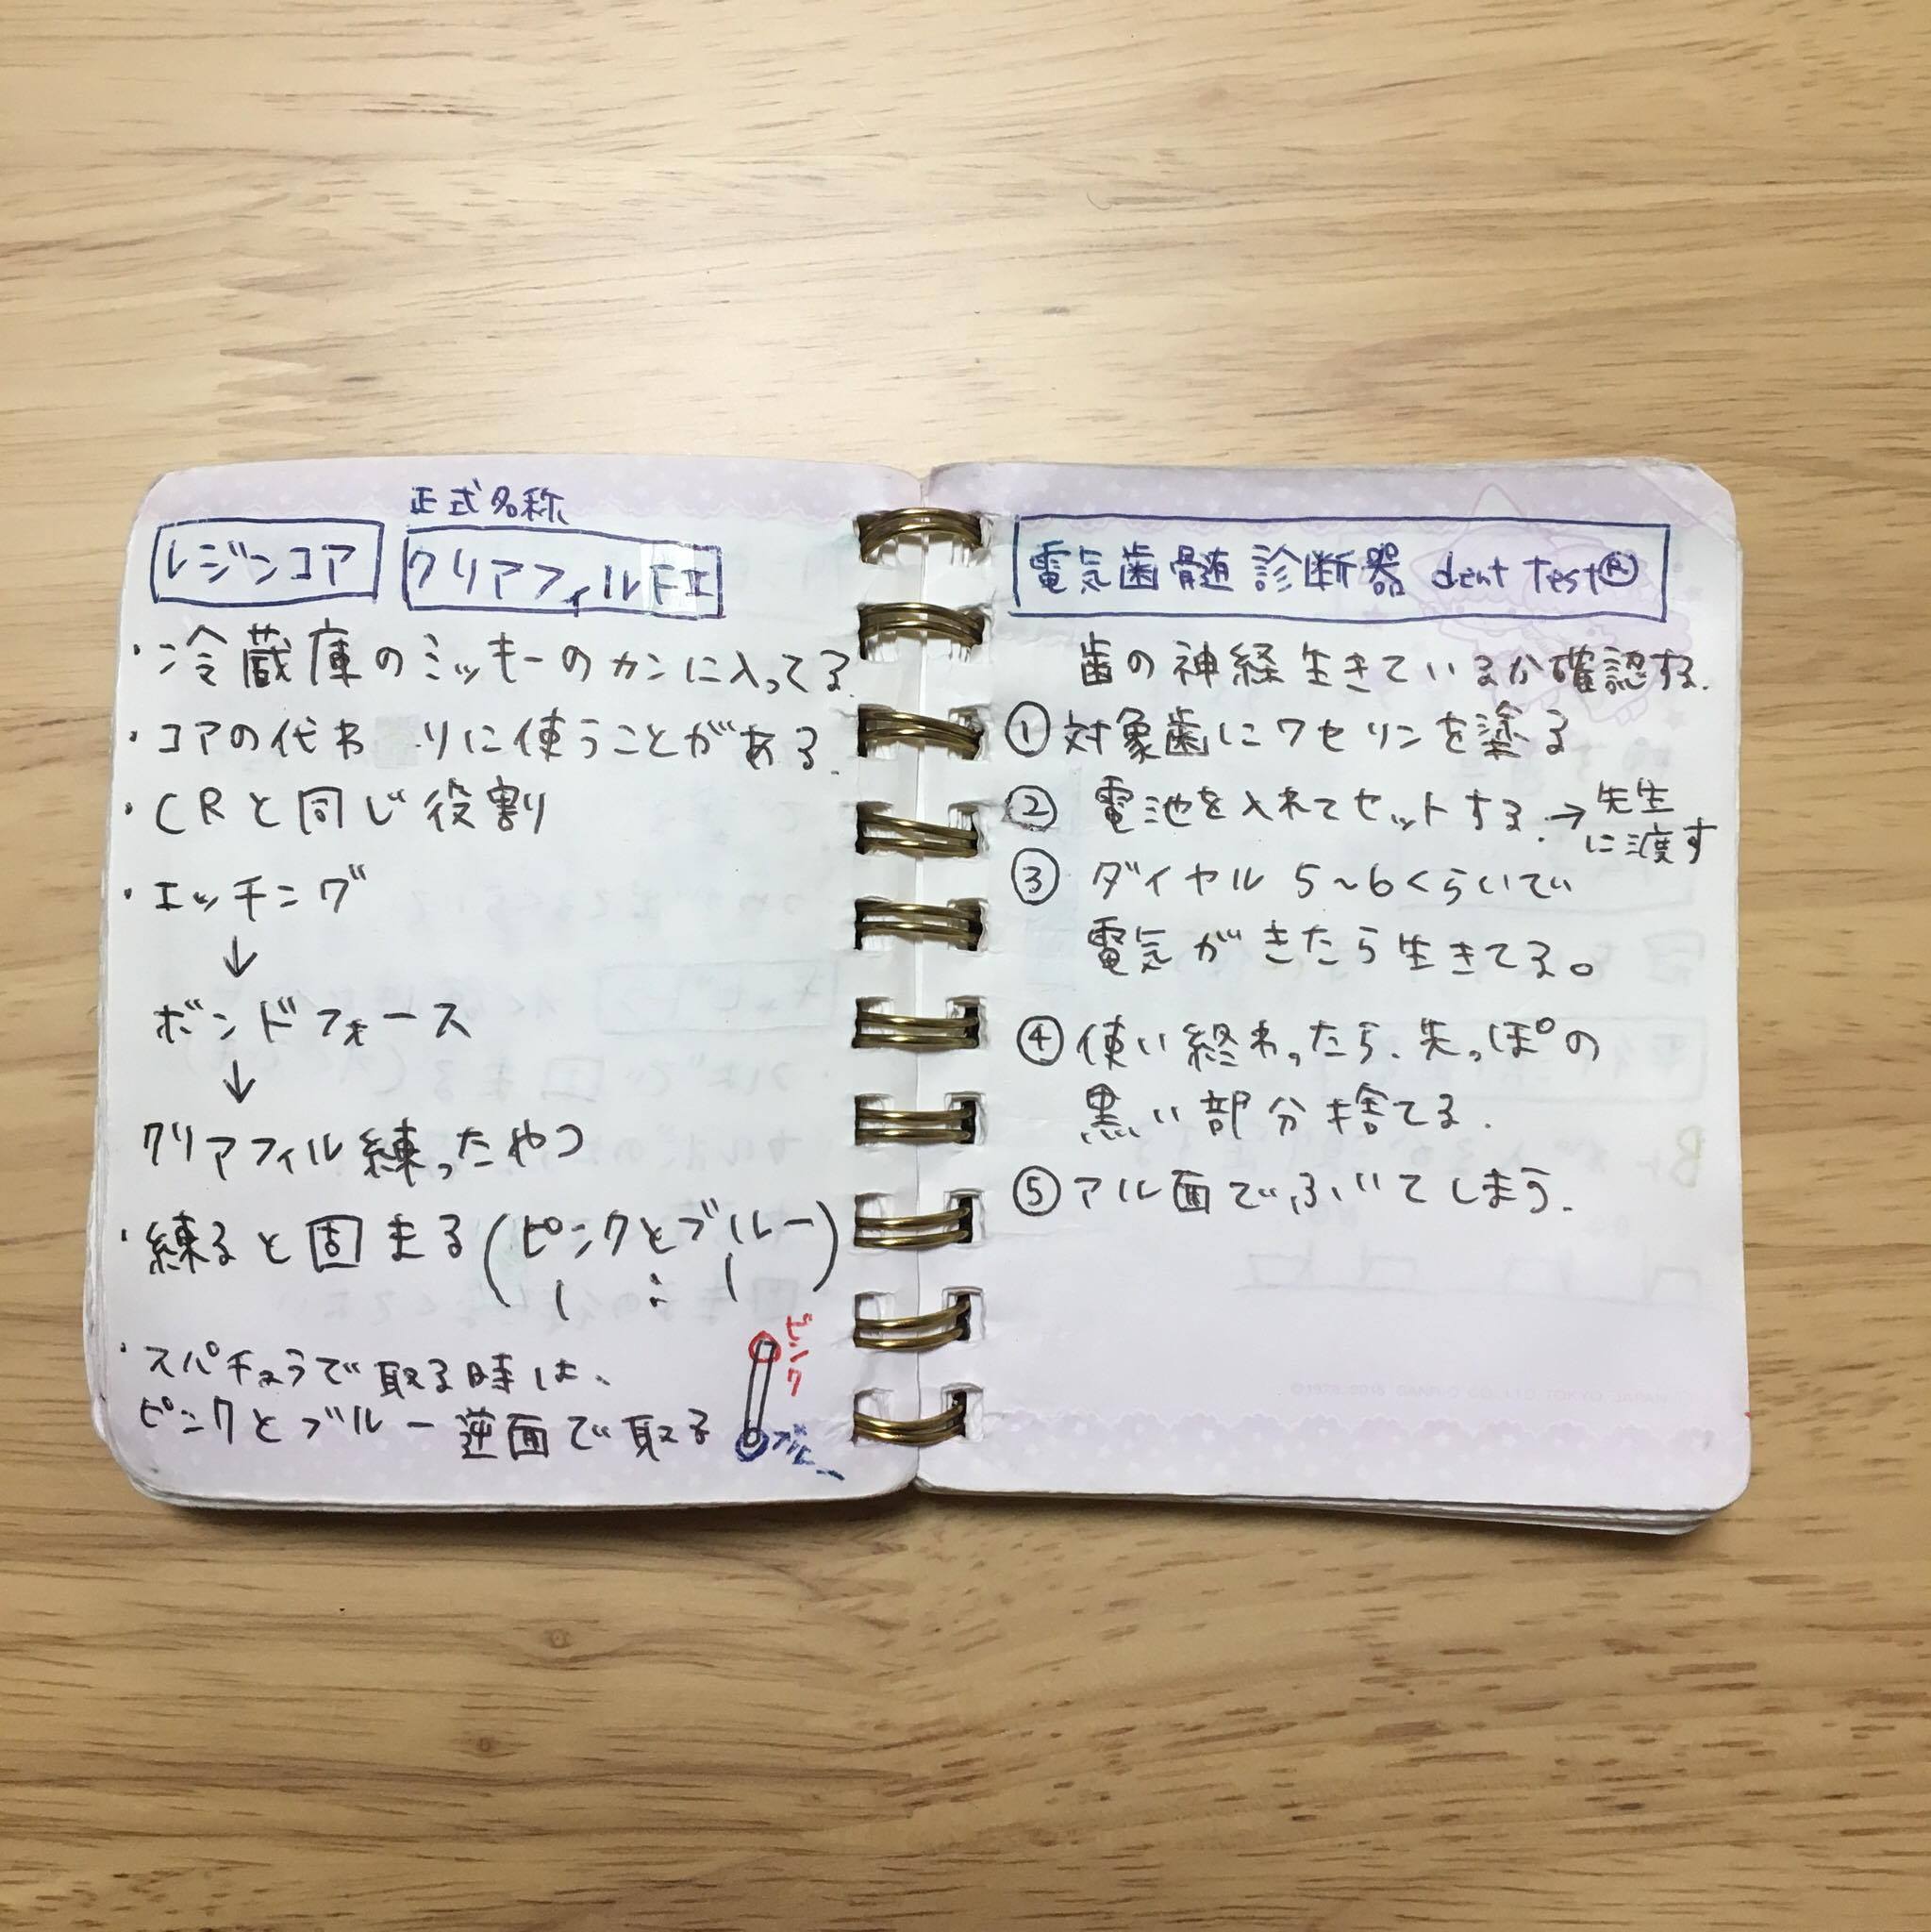 正式名称
レジンコア
クリアフィルFⅡ
・冷蔵庫のミッキーのカンに入ってる.
・コアの代わりに使うことがある.
・CRと同じ役割
・エッチング
↓
ボンドフォース
↓
クリアフィル練ったやつ
・練ると固まる(ピンクとブルー)
1 : 1
・スパチュラで取る時は、
ピンクとブルー逆面で取る
ピンク
ブルー
電気歯髄診断器 dent Test®
歯の神経生きているか確認する.
①対象歯にワセリンを塗る
② 電池を入れてセットする.→先生
に渡す
③ ダイヤル 5~6くらいで
電気がきたら生きてる。
④使い終わったら、先っぽの
黒い部分を捨てる.
⑤アル面でふいてしまう.